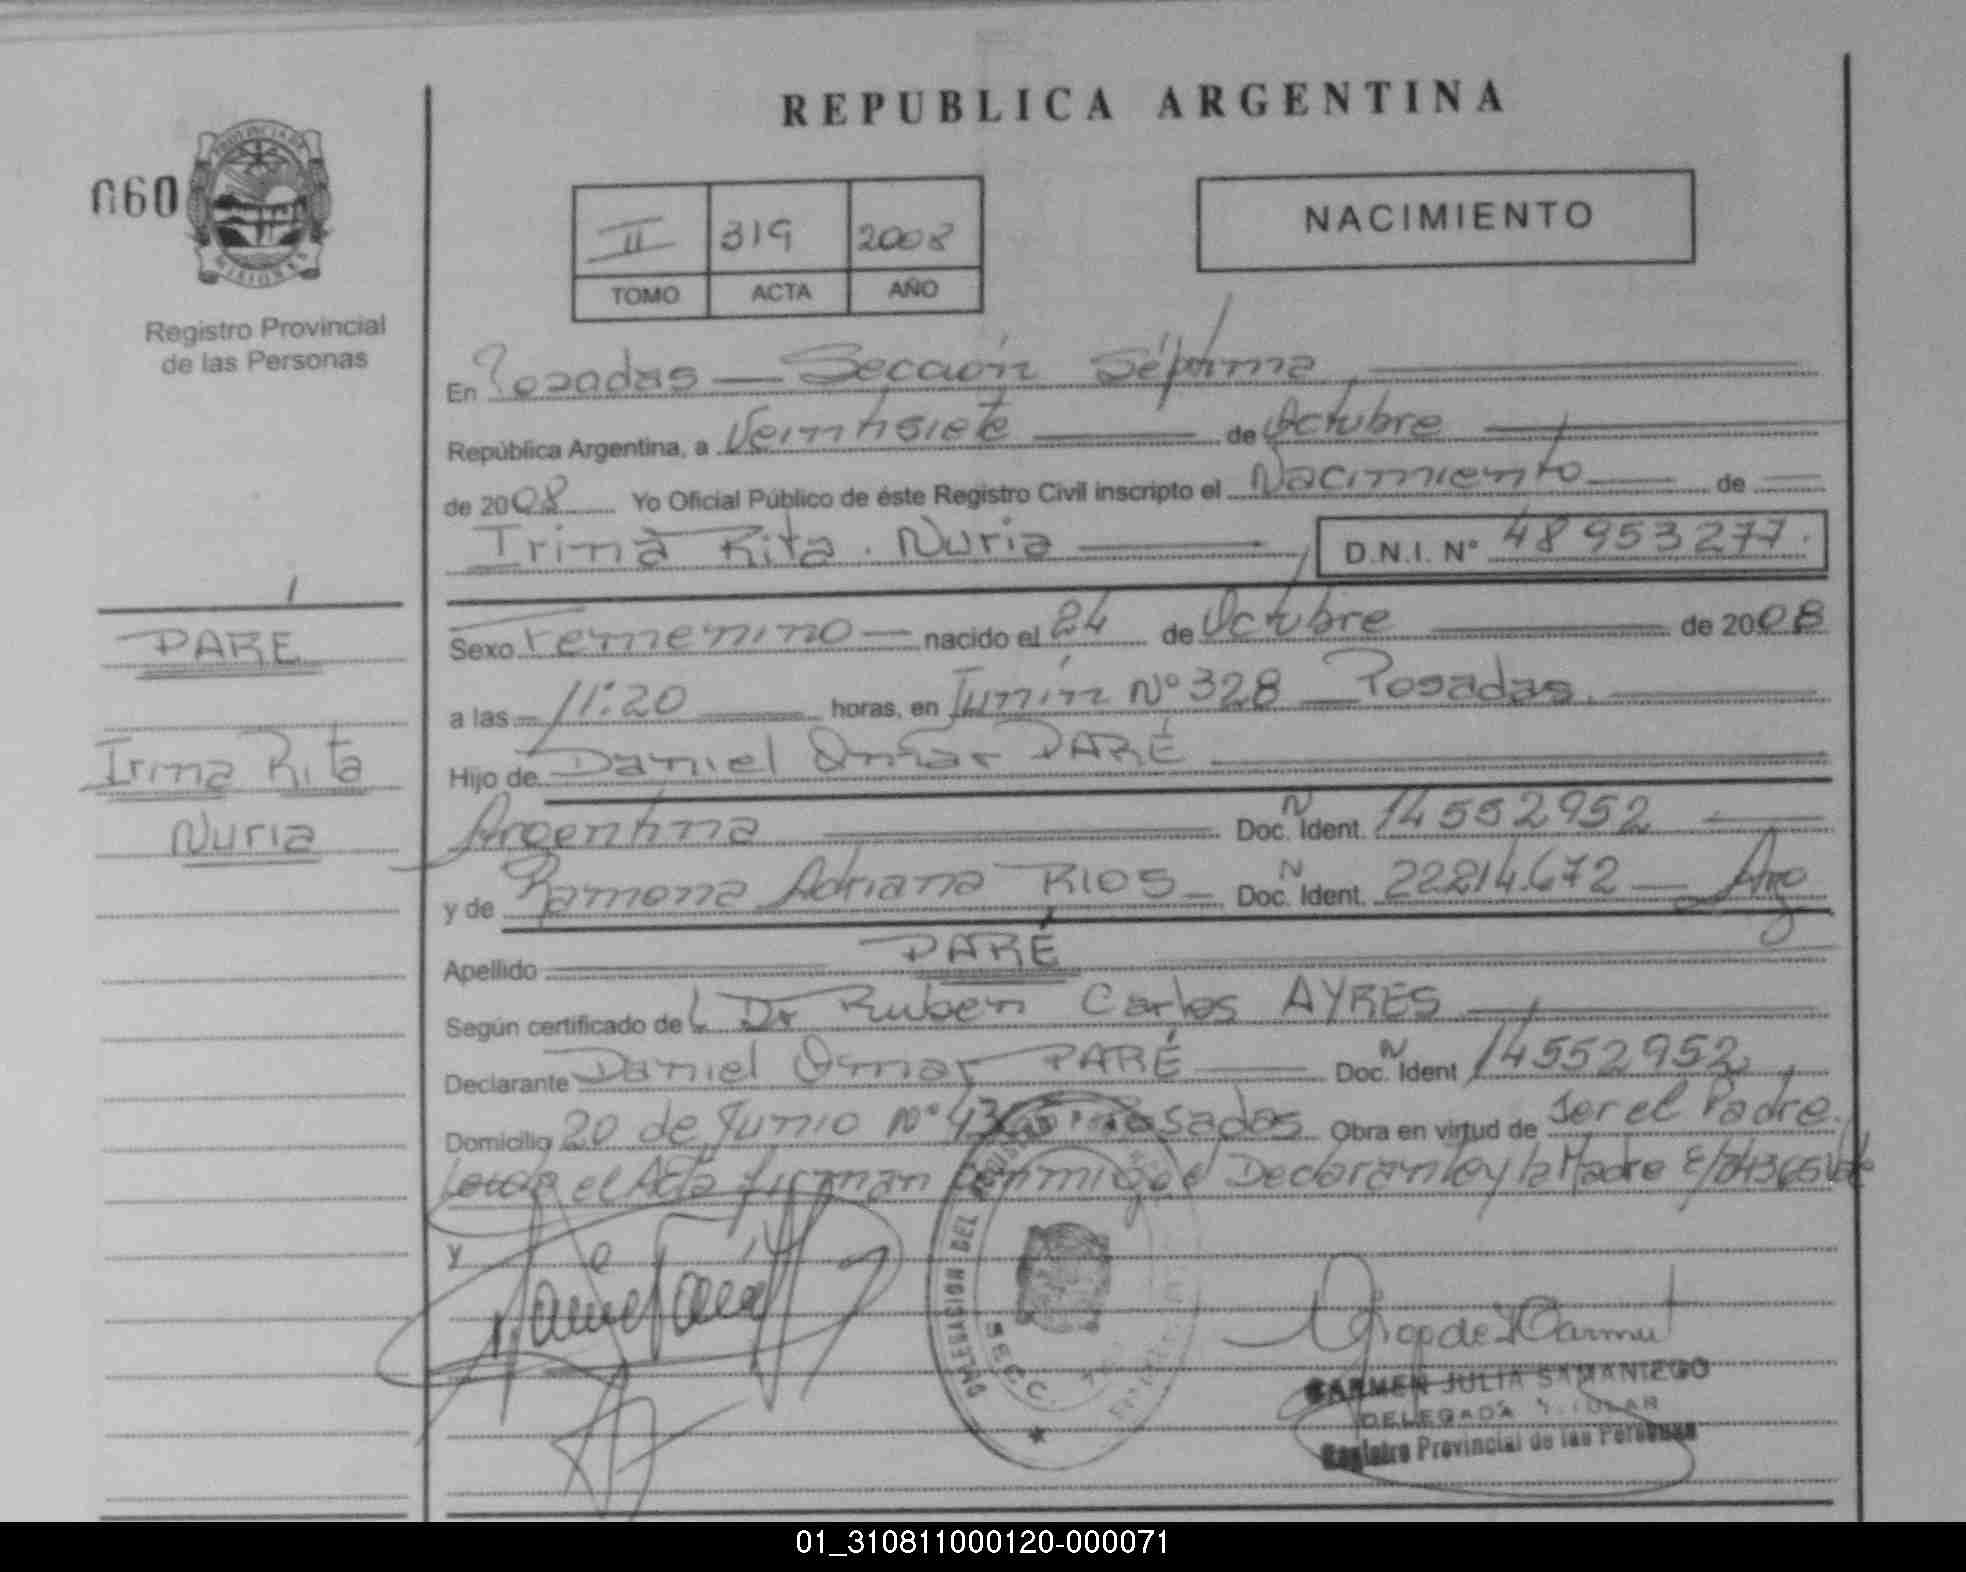 REPUBLICA ARGENTINA
060
PROVINCIA DE
MISIONES
Registro Provincial
de las Personas
II 319 2008
TOMO ACTA AÑO
NACIMIENTO
En Posadas — Sección Séptima
República Argentina, a Veintisiete de Octubre
de 2008 Yo Oficial Público de éste Registro Civil inscripto el Nacimiento de
Irina Rita Nuria D.N.I. N° 48953277.
PARE
Irina Rita
Nuria
Sexo Femenino nacido el 24 de Octubre de 2008
a las 11:20 horas, en Junín N° 328 — Posadas.
Hijo de Daniel Omar PARÉ
Argentina Doc. Ident. N 14552952
y de Ramona Adriana RIOS — Doc. Ident. N 22214.672 — Arg
Apellido PARÉ
Según certificado del Dr Ruben Carlos AYRES
Declarante Daniel Omar PARÉ Doc. Ident N 14552952
Domicilio 20 de Junio N° Posadas Obra en virtud de Ser el Padre.
Leida el Acta firman conmigo el Declarante y la Madre
DELEGACION DEL
SECC.
CARMEN JULIA SAMANIEGO
DELEGADA TITULAR
Registro Provincial de las Personas
01_310811000120-000071